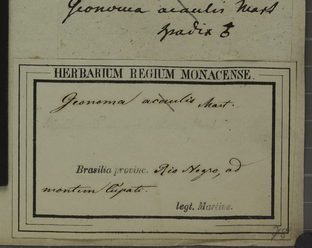 Geonoma acaulis Mart
spadix ♂
HERBARIUM REGIUM MONACENSE.
Geonoma acaulis Mart.
Brasilia provinc. Rio Negro, ad
montem Cupati.
legt. Martius.